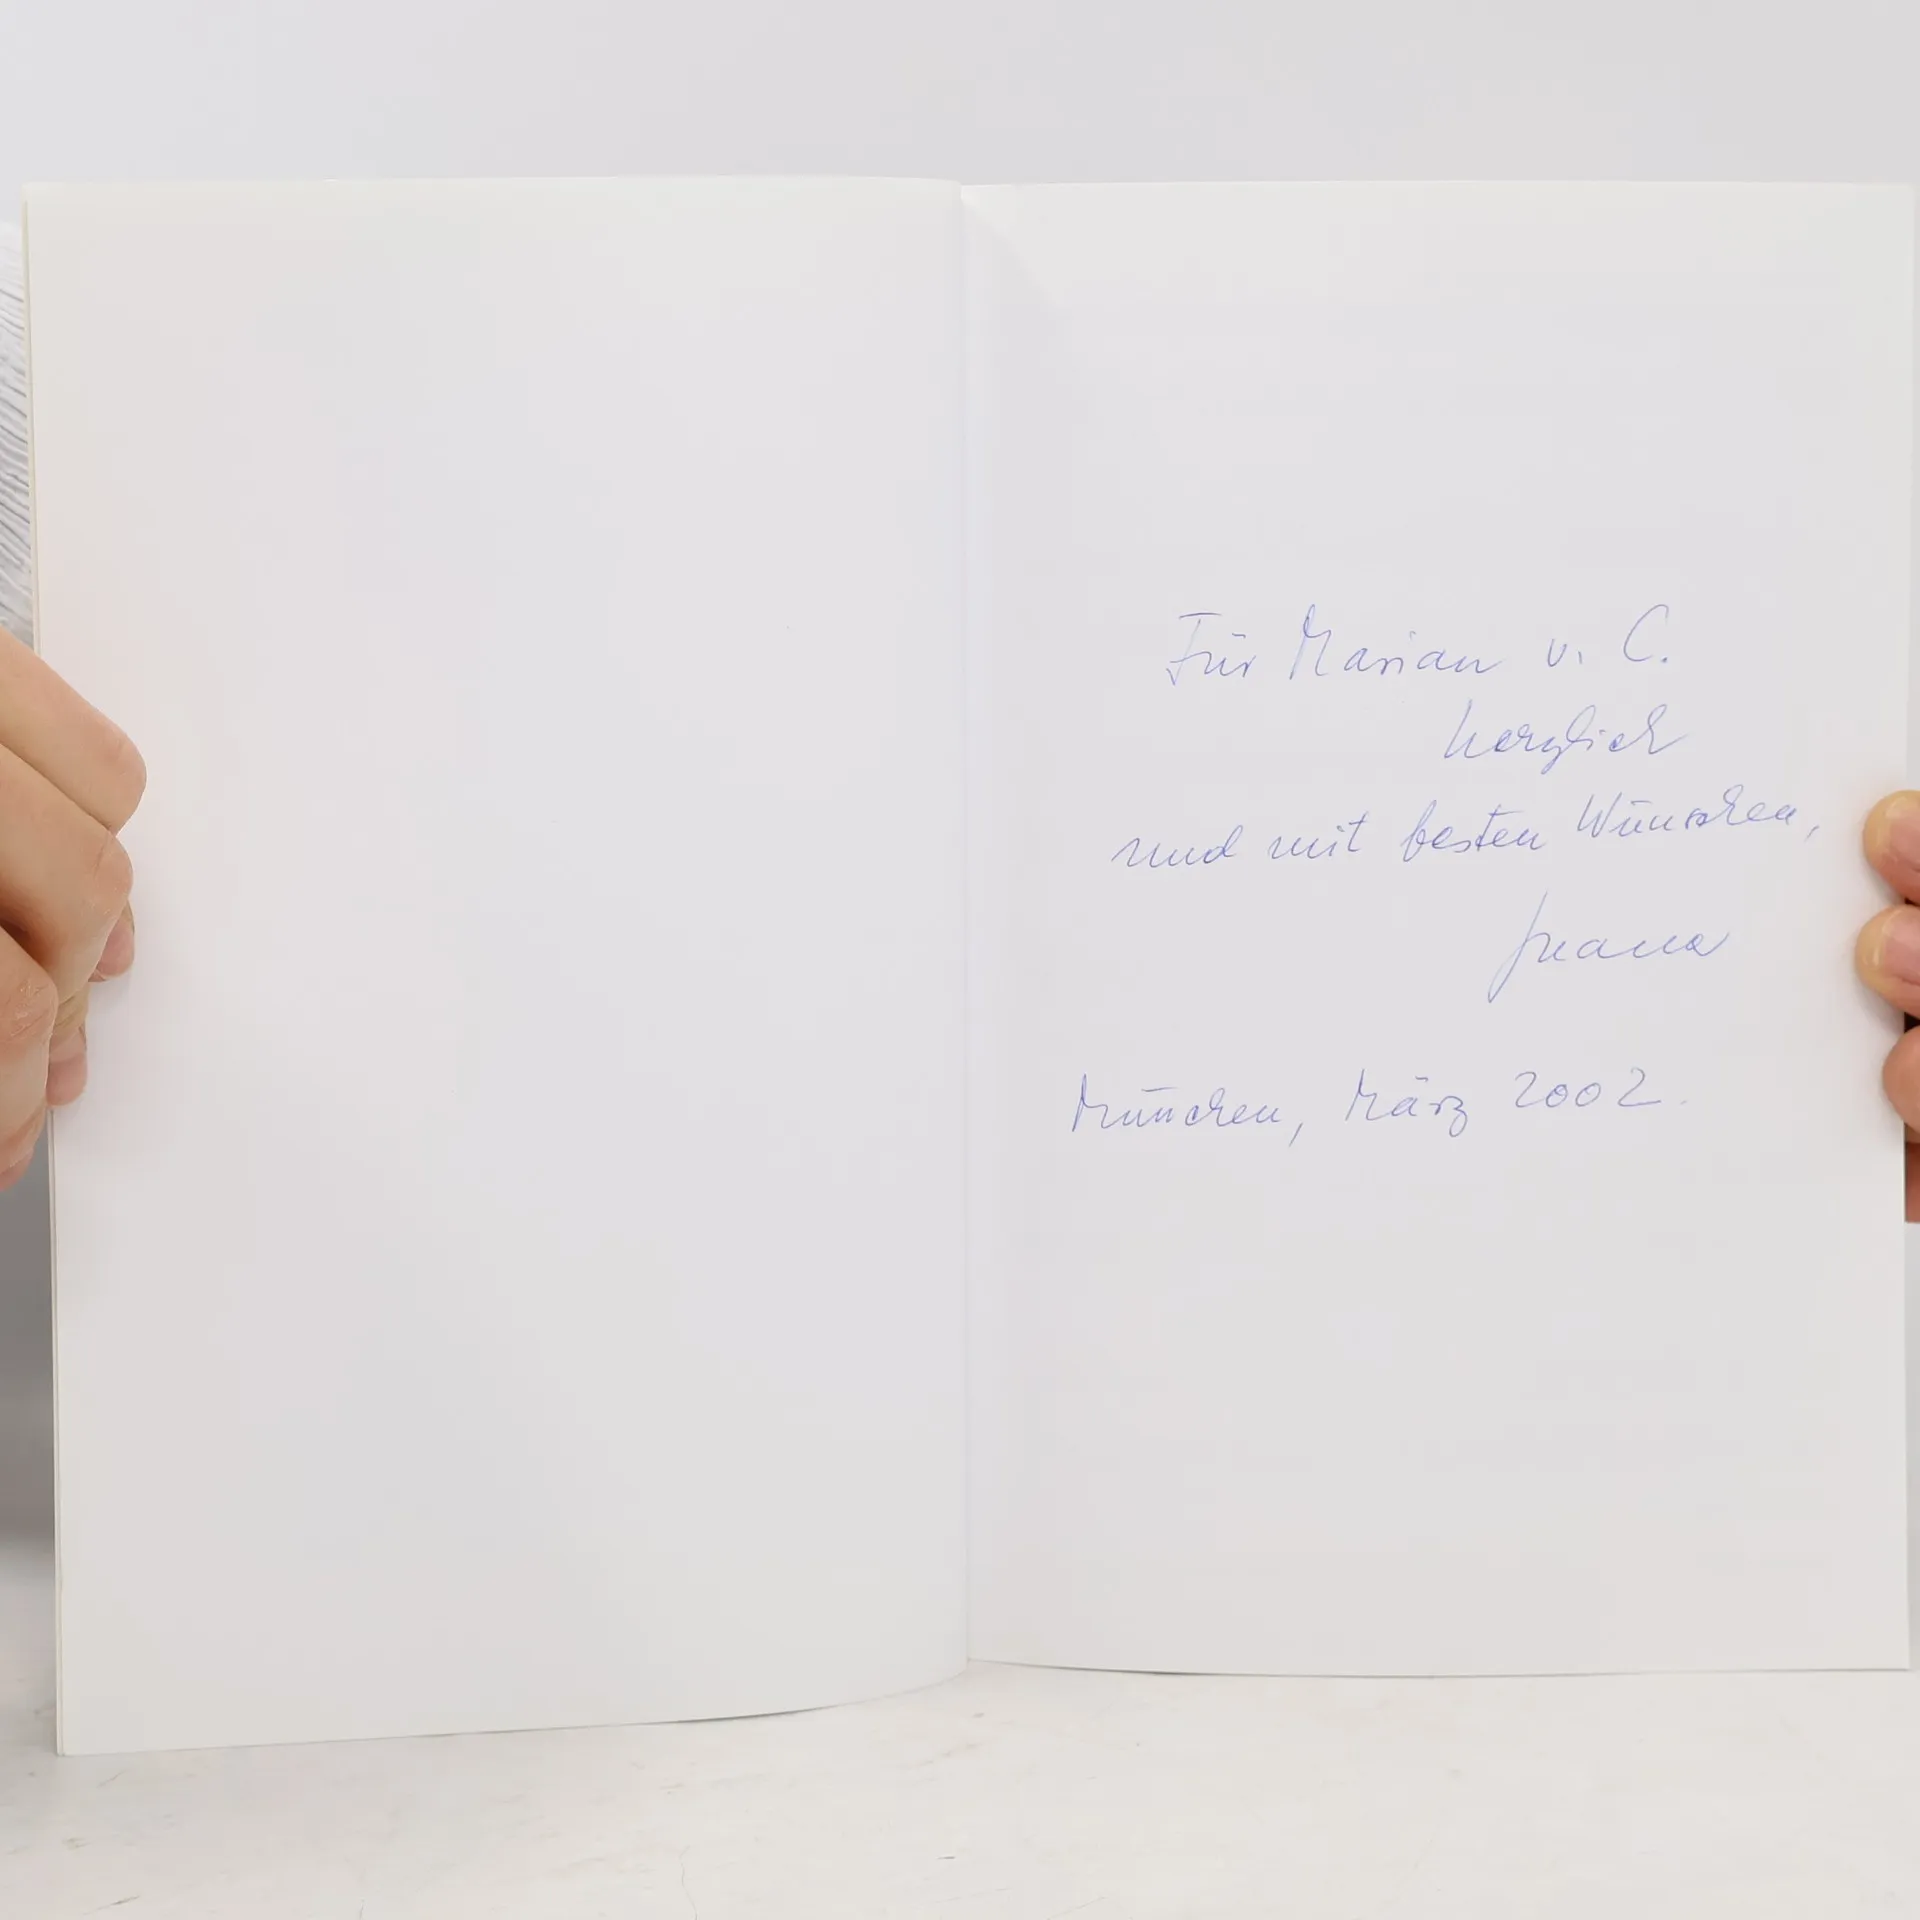 Für Marian v. C.
herzlich
und mit besten Wünschen,
Juana
München, März 2002.